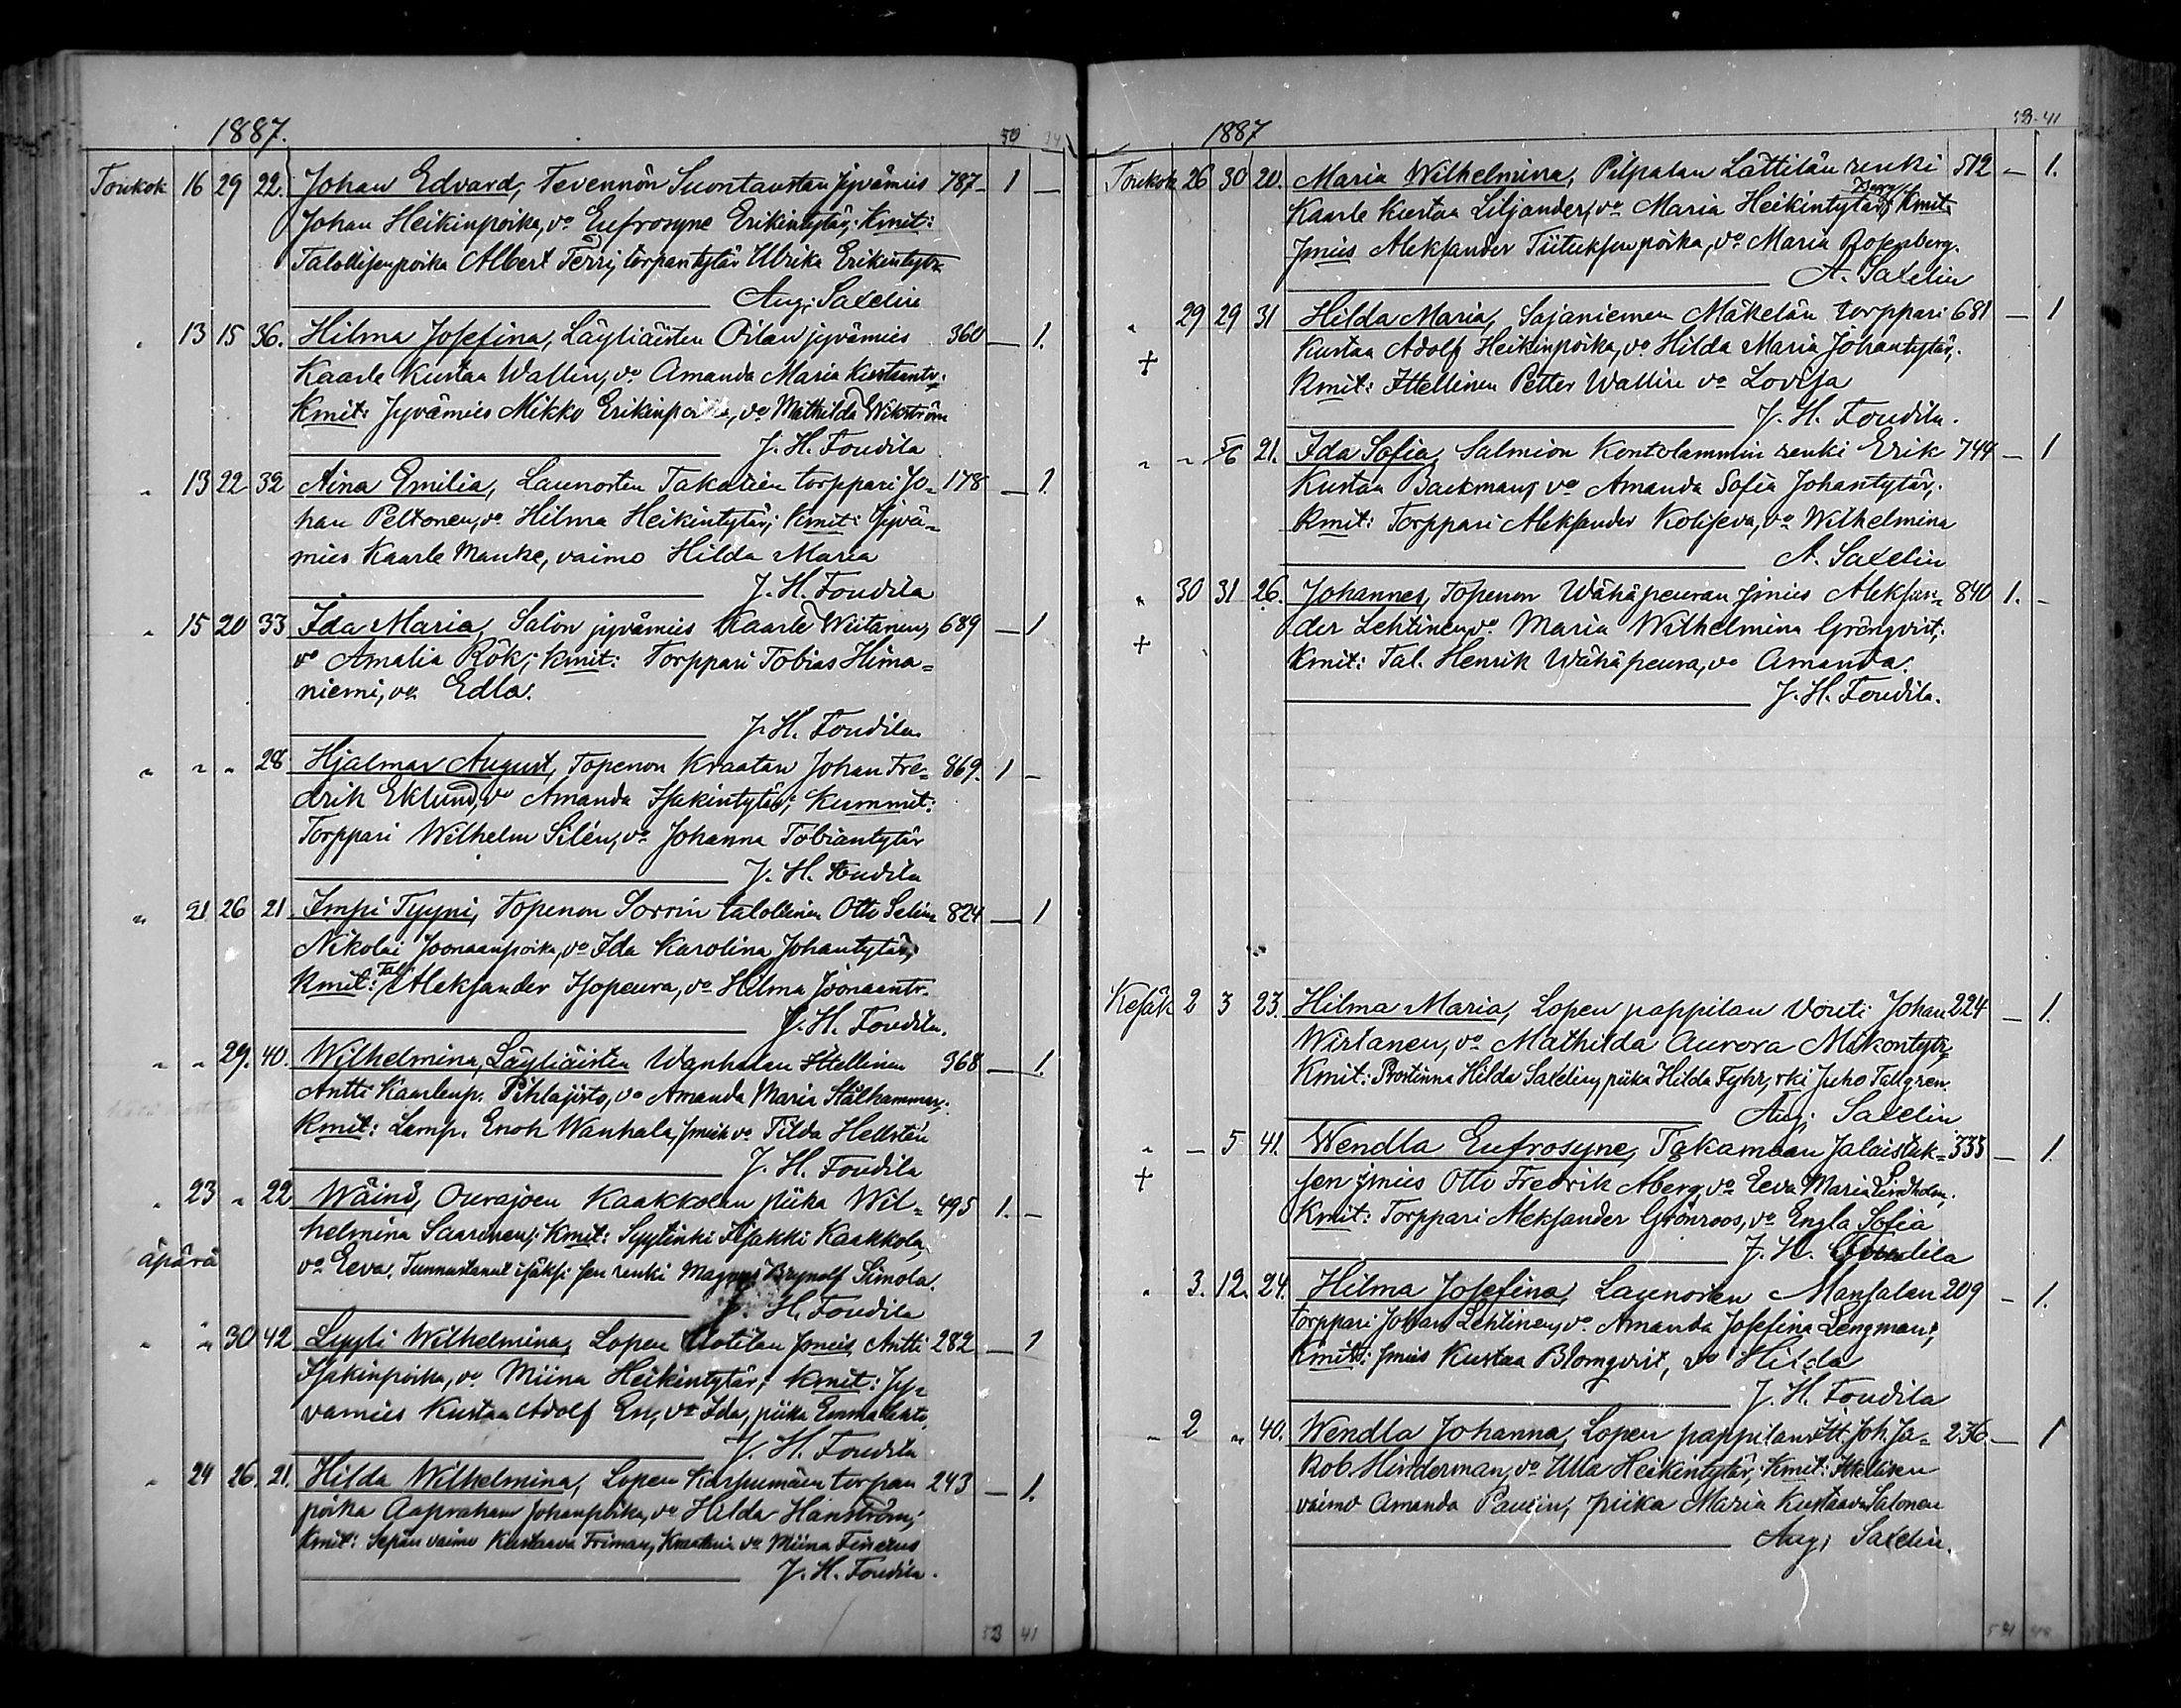 1887.
50
Toukok 16 29 22. Johan Edvard, Tevennön Suontaustan jyvämies 787 1 —
Johan Heikinpoika, vo Eufrosyne Erikintytär; Kmit:
Talollisenpoika Albert Terri, torpantytär Ulrika Erikintytr.
Aug. Saxelin
" 13 15 36. Hilma Josefina, Läyliäisten Oilan jyvämies 360 — 1.
Kaarle Kustaa Wallin, vo Amanda Maria Kustaantr.
Kmit: Jyvämies Mikko Erikinpoika, vo Mathilda Wikström
J. H. Foudila
" 13 22 32 Aina Emilia, Launosten Takalien torppari Jo- 178 — 1.
han Peltonen, vo Hilma Heikintytär; Kmit: Jyvä-
mies Kaarle Manke, vaimo Hilda Maria
J. H. Foudila
" 15 20 33 Ida Maria, Salon jyvämies Kaarle Wiitanen, 689 — 1
vo Amalia Rök; Kmit: Torppari Tobias Hima-
niemi, vo Edla.
J. H. Foudila.
" " " 28 Hjalmar August, Topenon Kraatari Johan Fre- 869. 1 —
drik Eklund, vo Amanda Isakintytär; Kummit:
Torppari Wilhelm Silén, vo Johanna Tobiantytär
J. H. Foudila
" 21 26 21 Impi Tyyni, Topenon Sorrin talollinen Otto Selim 824 — 1
Nikolai Joonaanpoika, vo Ida Karolina Johantytär;
Kmit: Tal. Aleksander Isopeura, vo Hilma Joonaantr.
J. H. Foudila.
" " 29. 40. Wilhelmina, Läyliäisten Wanhalan Ittellinen 368 — 1.
Antti Kaarlenp. Pihlajisto, vo Amanda Maria Stålhammar;
Kmit: Lamp. Enok Wanhala, vo Tilda Hellstén
J. H. Foudila
" 23 " 22 Wäinö, Ourajoen Kaakkolan piika Wil- 495 1. —
helmina Saarinen; Kmit: Syytinki Isakki Kaakkola,
äpärä vo Eeva, Tunnustanut isäksi sen renki Magnus Brynolf Simola.
J. H. Foudila
" " 30 42 Lyyli Wilhelmina, Lopen Uotilan jmies Antti 282 — 1
Isakinpoika, vo Miina Heikintytär; Kmit: Jy-
vämies Kustaa Adolf En, vo Ida, piika Emma Lehto
J. H. Foudila
" 24 26. 21. Hilda Wilhelmina, Lopen Karpumäen torpan 243 — 1.
poika Aaprahan Johanpoika, vo Hilda Hanström;
Kmit: Sepän vaimo Kustaava Friman, Kraatarin vo Miina Finerus
J. H. Foudila.
53 41
1887
53-41
Toukok 26 30 20. Maria Wilhelmina, Pilpalan Lättilän renki 512 — 1.
Kaarle Kustaa Liljander, vo Maria Heikintytär Berg; Kmit:
Jmies Aleksander Tiituksenpoika, vo Maria Rosenberg.
A. Saxelin
" 29 29 31 Hilda Maria, Sajaniemen Mäkelän torppari 681 — 1
+ Kustaa Adolf Heikinpoika, vo Hilda Maria Johantytär;
Kmit: Ittellinen Petter Wallin vo Lovisa
J. H. Foudila.
" " 21. Ida Sofia, Salmion Kontolammin renki Erik 744 — 1
Kustaa Backman, vo Amanda Sofia Johantytär;
Kmit: Torppari Aleksander Koliseva, vo Wilhelmina
A. Saxelin
" 30 31 26. Johannes, Topenon Wähäpeuran jmies Aleksan- 840 1. —
+ der Lehtinen, vo Maria Wilhelmina Grönqvist;
Kmit: Tal. Henrik Wähäpeura, vo Amanda.
J. H. Foudila.
Kesäk 2 3 23. Hilma Maria, Lopen pappilan Vouti Johan 224 — 1.
Wirtanen, vo Mathilda Aurora Mikontytr.
Kmit: Rostinna Hilda Saxelin, piika Hilda Fyhr, rki Juho Tallgren.
Aug. Saxelin
" — 5 41. Wendla Eufrosyne, Takamaan Jalaistuk- 333 — 1.
+ sen jmies Otto Fredrik Åberg, vo Eeva Maria Lindholm.
Kmit: Torppari Aleksander Grönroos, vo Engla Sofia
J. H. Foudila
" 3. 12. 24. Hilma Josefina, Launosten Mansalan 209 — 1.
torppari Johan Lehtinen, vo Amanda Josefina Lengman;
Kmit: jmies Kustaa Blomqvist, vo Hilda
J. H. Foudila
" 2 " 40. Wendla Johanna, Lopen pappilan Itt. Joh. Ja- 236 — 1
kob Hinderman, vo Ulla Heikintytär; Kmit: Ittellisen
vaimo Amanda Paulin, piika Maria Kustaava Salonen
Aug. Saxelin.